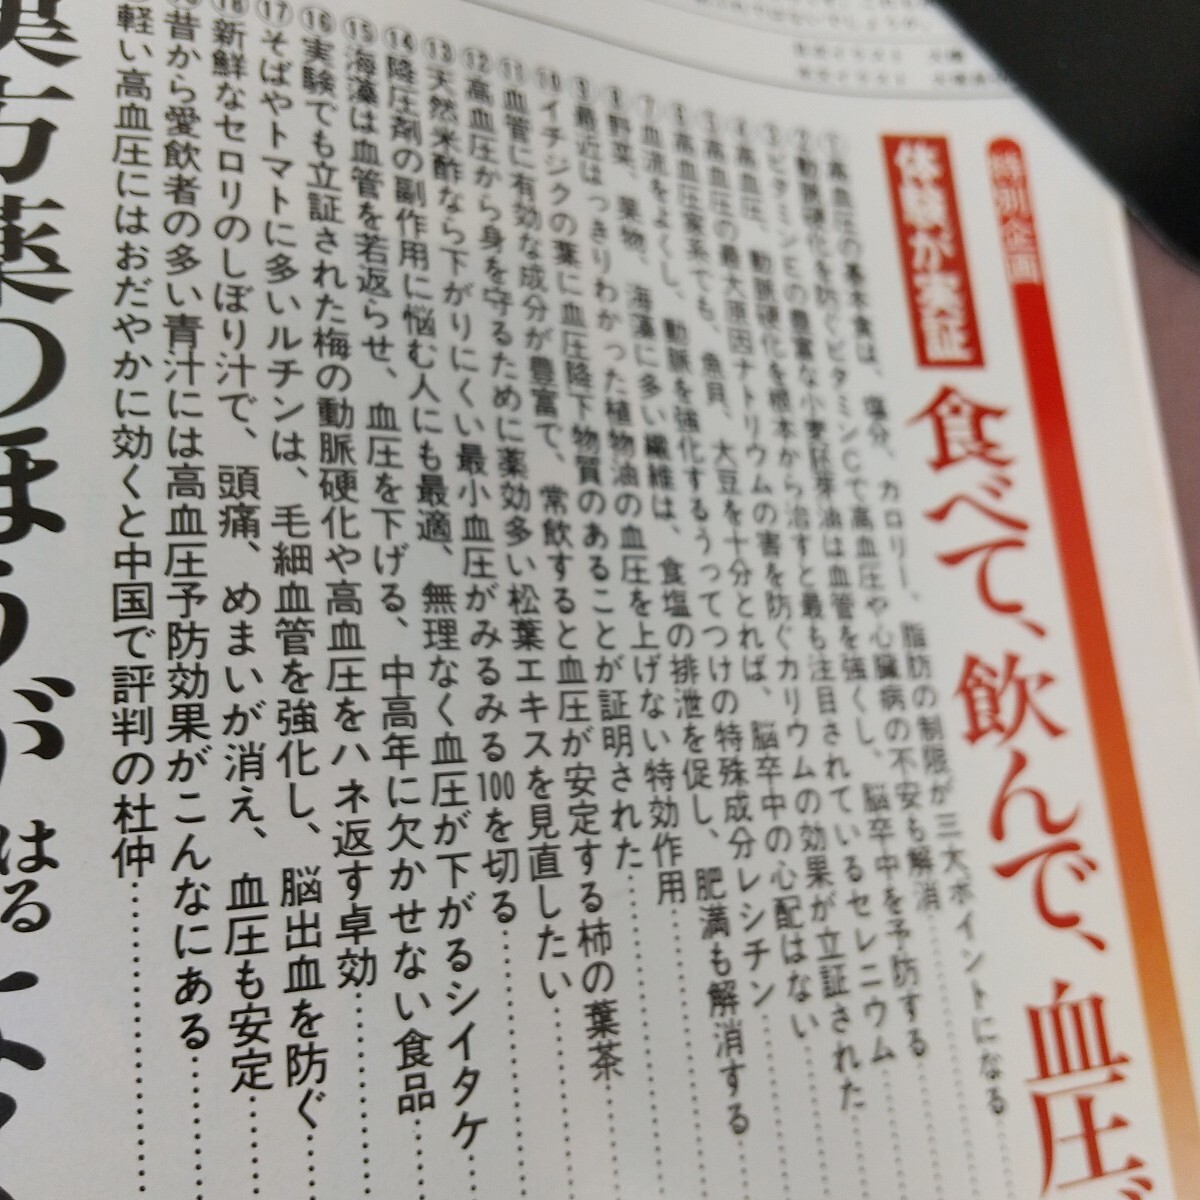 特別企画
体験が実証
食べて、飲んで、血圧
①高血圧の基本食は、塩分、カロリー、脂肪の制限が三大ポイントになる
②動脈硬化を防ぐビタミンCで高血圧や心臓病の不安も解消
③ビタミンEの豊富な小麦胚芽油は血管を強くし、脳卒中を予防する
④高血圧、動脈硬化を根本から治すと最も注目されているセレニウム
⑤高血圧の最大原因ナトリウムの害を防ぐカリウムの効果が立証された
⑥高血圧家系でも、魚貝、大豆を十分とれば、脳卒中の心配はない
⑦血流をよくし、動脈を強化するうってつけの特殊成分レシチン
⑧野菜、果物、海藻に多い繊維は、食塩の排泄を促し、肥満も解消する
⑨最近はっきりわかった植物油の血圧を上げない特効作用
⑩イチジクの葉に血圧降下物質のあることが証明された
⑪血管に有効な成分が豊富で、常飲すると血圧が安定する柿の葉茶
⑫高血圧から身を守るために薬効多い松葉エキスを見直したい
⑬天然米酢なら下がりにくい最小血圧がみるみる100を切る
⑭降圧剤の副作用に悩む人にも最適、無理なく血圧が下がるシイタケ
⑮海藻は血管を若返らせ、血圧を下げる、中高年に欠かせない食品
⑯実験でも立証された梅の動脈硬化や高血圧をハネ返す卓効
⑰そばやトマトに多いルチンは、毛細血管を強化し、脳出血を防ぐ
⑱新鮮なセロリのしぼり汁で、頭痛、めまいが消え、血圧も安定
昔から愛飲者の多い青汁には高血圧予防効果がこんなにある
軽い高血圧にはおだやかに効くと中国で評判の杜仲
漢方薬のほうがはるによく